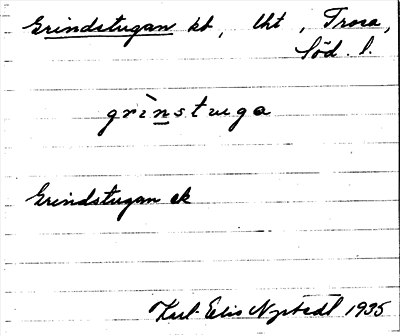 Grindstugan kb, lht, Trosa,
Söd. l.
grìnstuga
Grindstugan ek
Karl Elis Nystedt 1935